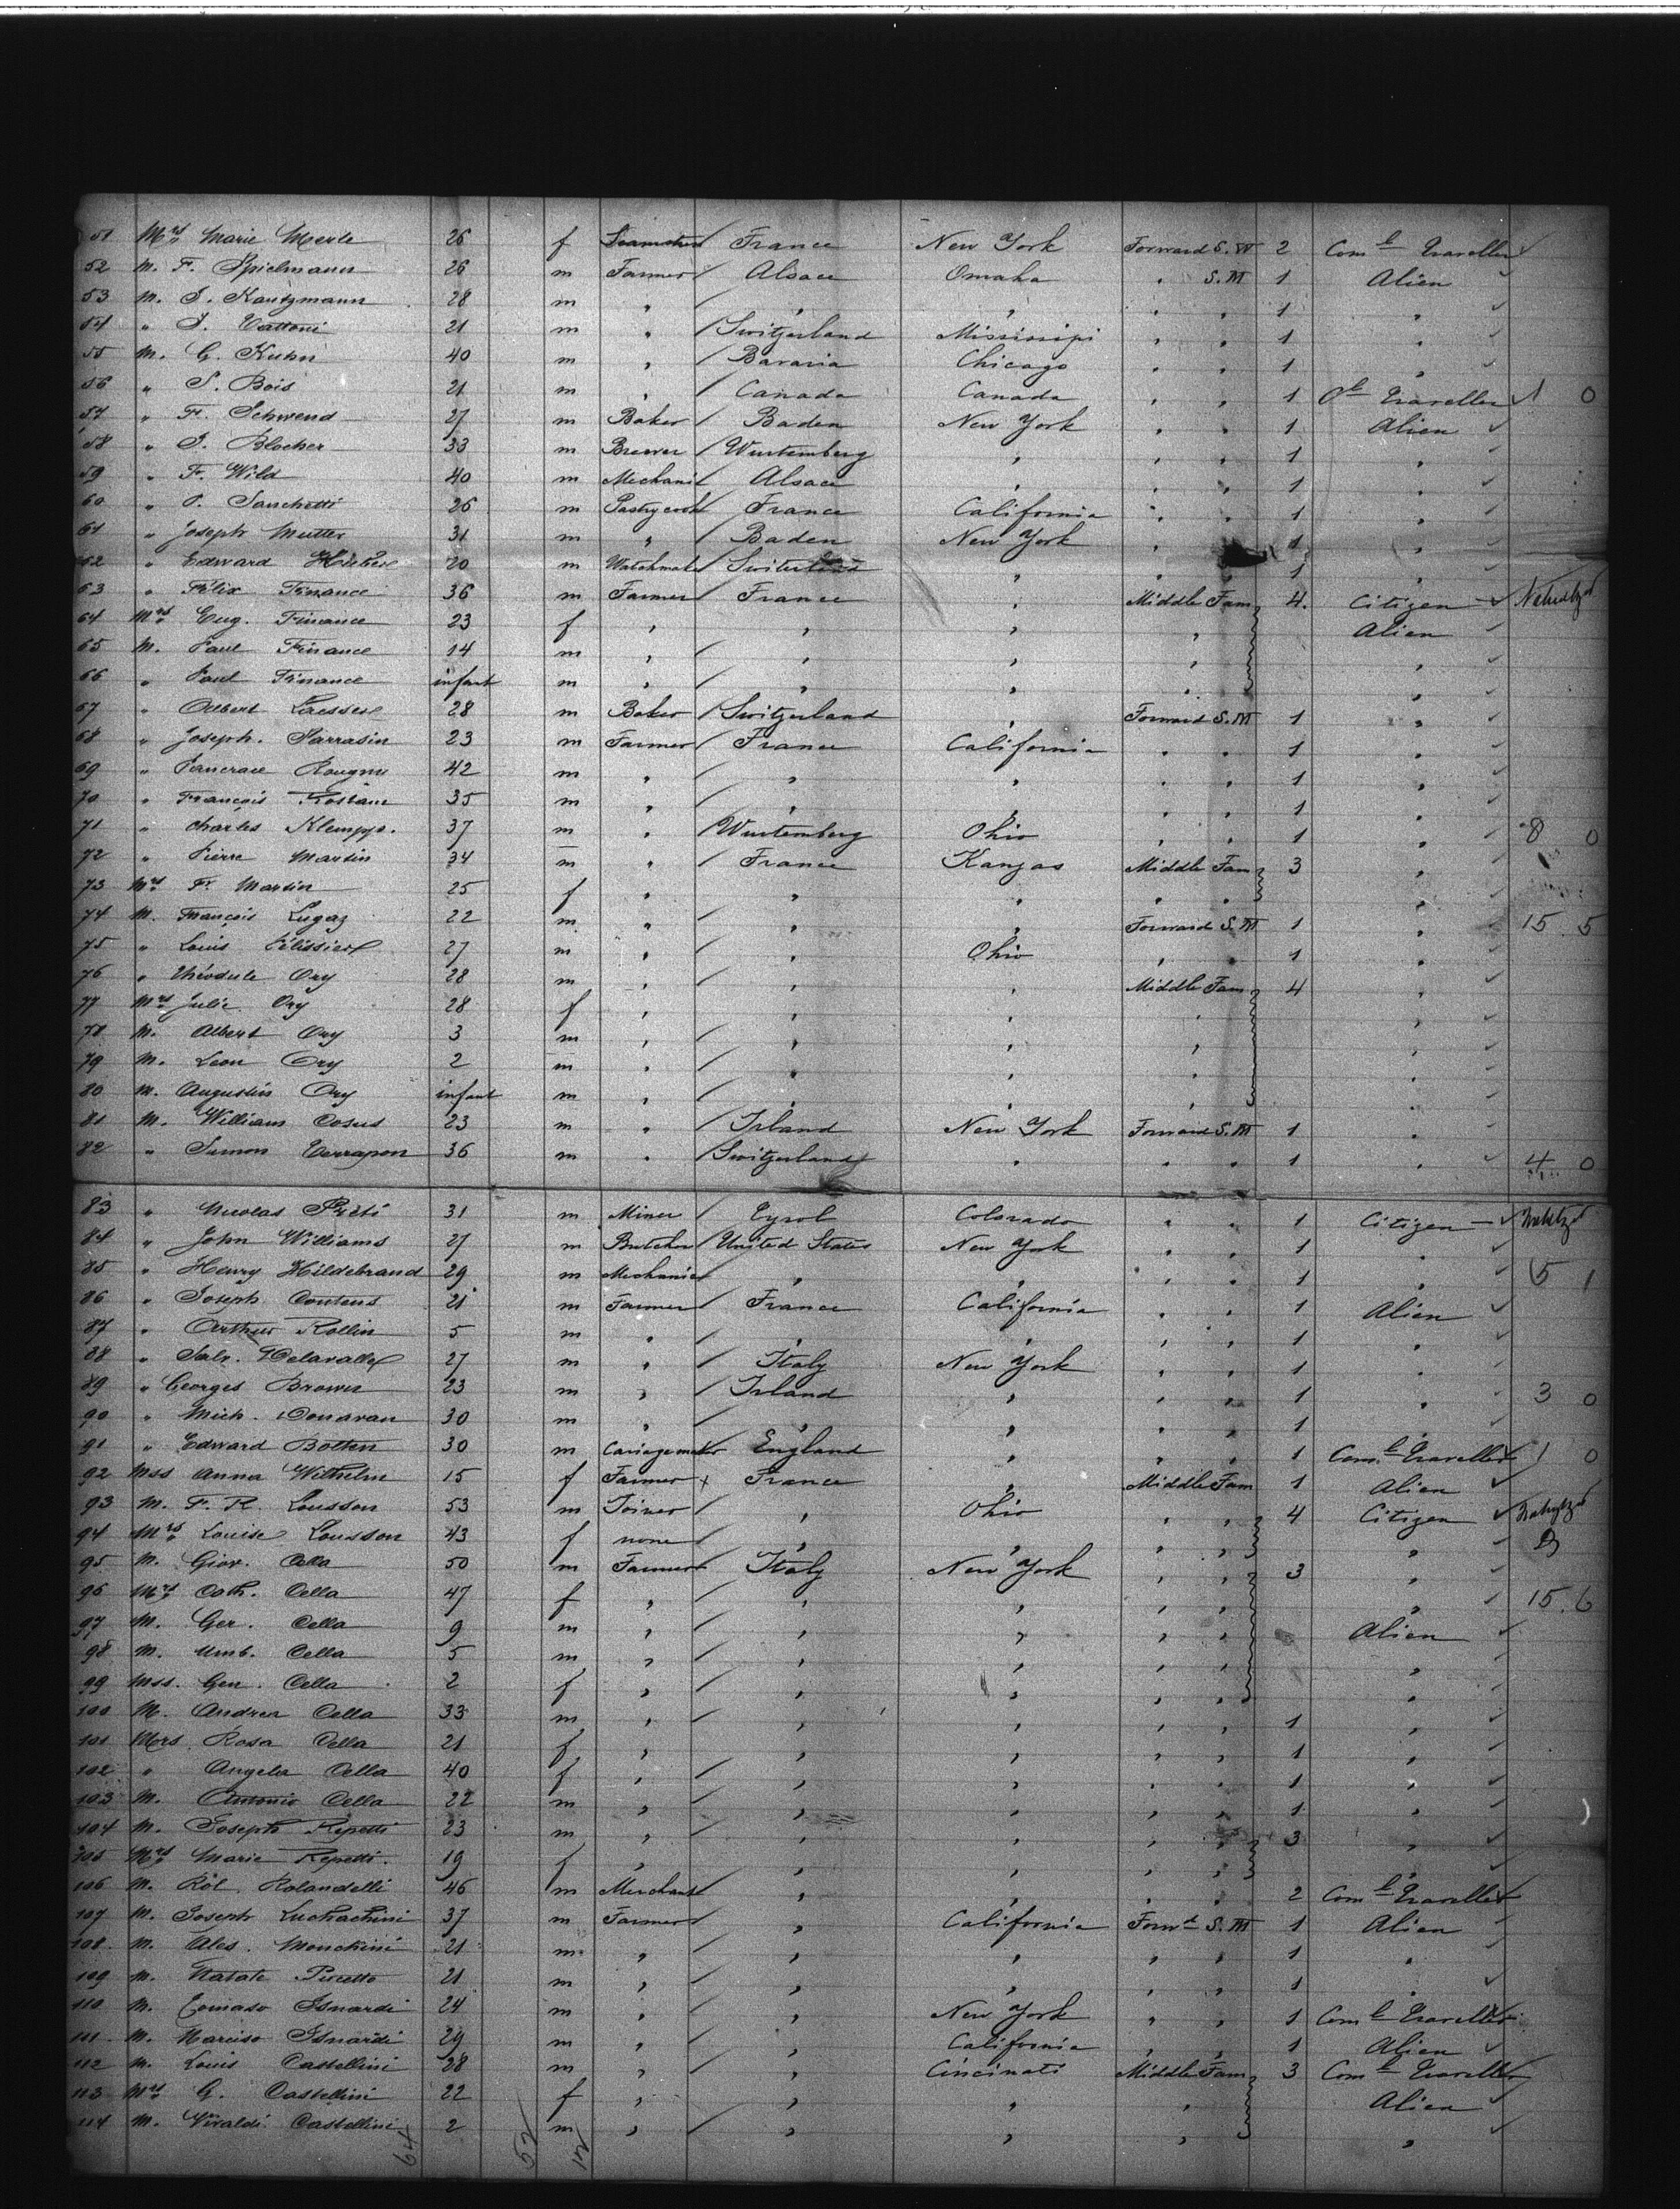 51 Mrs Marie Merle 26 f Seamstress France New York Forward S. W 2 Coml Traveller
52 M. F. Spielmann 26 m Farmer Alsace Omaha " S. M 1 Alien
53 M. J. Kautzmann 28 m " " " " " 1 "
54 " J. Vattoni 21 m " Switzerland Mississipi " " 1 "
55 M. G. Kuhn 40 m " Bavaria Chicago " " 1 "
56 " S. Bois 21 m " Canada Canada " " 1 Traveller 1 0
57 " F. Schwend 27 m Baker Baden New York " " 1 Alien
58 " J. Blocher 33 m Brewer Wurtemberg " " " 1 "
59 " F. Wild 40 m Mechanic Alsace " " " 1 "
60 " P. Sanchetti 26 m Pastrycook France California " " 1 "
61 " Joseph Mutter 31 m " Baden New York " 1 "
62 " Edward 20 m Watchmaker Switerland " " " 1 "
63 " Félix Finance 36 m Farmer France " Middle Fam 4. Citizen
64 Mrs Eug. Finance 23 f " " " " Alien
65 M. Paul Finance 14 m " " " " "
66 " Paul Finance infant m " " " " "
67 " Albert 28 m Baker Switzerland " Forward S. M 1 "
68 " Joseph. Sarrasin 23 m Farmer France California " " 1 "
69 " Pancrace Rougny 42 m " " " " " 1 "
70 " François Rostain 35 m " " " " " 1 "
71 " Charles Klempp. 37 m " Wurtemberg Ohio " " 1 " 8 0
72 " Pierre Martin 34 m " France Kanzas Middle Fam 3 "
73 Mrs F. Martin 25 f " " " " " "
74 M. François Lugaz 22 m " " " Forward S. M 1 " 15 5
75 " Louis Pélissier 27 m " " Ohio " " 1 "
76 " Théodule Ory 28 m " " " Middle Fam 4 "
77 Mrs Julie Ory 28 f " " " " "
78 M. Albert Ory 3 m " " " " "
79 M. Leon Ory 2 m " " " " "
80 M. Augustin Ory infant m " " " " "
81 M. William Cosus 23 m " Irland New York Forward S. M 1 "
82 " Simon Verrapon 36 m " Switzerland " " " 1 " 4 0
83 " Nicolas Prèti 31 m Miner Tyrol Colorado " " 1 Citizen
84 " John Williams 27 m Butcher United States New York " " 1 "
85 " Henry Hildebrand 29 m Mechanic " " " " 1 " 5 1
86 " Joseph Contens 21 m Farmer France California " " 1 Alien
87 " Arthur Rollin 5 m " " " " " 1 "
88 " Salv. Delavalle 27 m " Italy New York " " 1 "
89 " Georges Brown 23 m " Irland " " " 1 " 3 0
90 " Mich. Donavan 30 m " " " " " 1 "
91 " Edward Bolten 30 m Cariagemaker England " " " 1 Coml Traveller 1 0
92 Mss Anna Wilhelm 15 f Farmer France " Middle Fam 1 Alien
93 M. F. R. Lousson 53 m Joiner " Ohio " " 4 Citizen
94 Mrs Louise Lousson 43 f none " " " " "
95 M. Giov. Cella 50 m Farmer Italy New York " " 3 "
96 Mrs Cath. Cella 47 f " " " " " " 15 6
97 M. Ger. Cella 9 m " " " " " Alien
98 M. Umb. Cella 5 m " " " " " "
99 Mss. Gen. Cella 2 f " " " " " "
100 M. Andrea Cella 33 m " " " " " 1 "
101 Mrs. Rosa Cella 21 f " " " " " 1 "
102 " Angela Cella 40 f " " " " " 1 "
103 M. Antonio Cella 22 m " " " " " 1 "
104 M. Joseph Repetti 23 m " " " " " 3 "
105 Mrs Marie Repetti. 19 f " " " " " "
106 M. Rol. Rolandelli 46 m Merchant " " " " 2 Coml Traveller
107 M. Joseph Luchachini 37 m Farmer " California Forwd S. M 1 Alien
108. M. Ales. Monchini 21 m " " " " " 1 "
109 M. Natale Pucetto 21 m " " " " " 1 "
110 M. Tomaso Isnardi 24 m " " New York " " 1 Coml Traveller
111 M. Narciso Isnardi 29 m " " California " " 1 Alien
112 M. Louis Castellini 28 m " " Cincinati Middle Fam 3 Coml Traveller
113 Mrs G. Castellini 22 f " " " " Alien
114 M. Vivaldi Castellini 2 m " " " " "
64 52 12